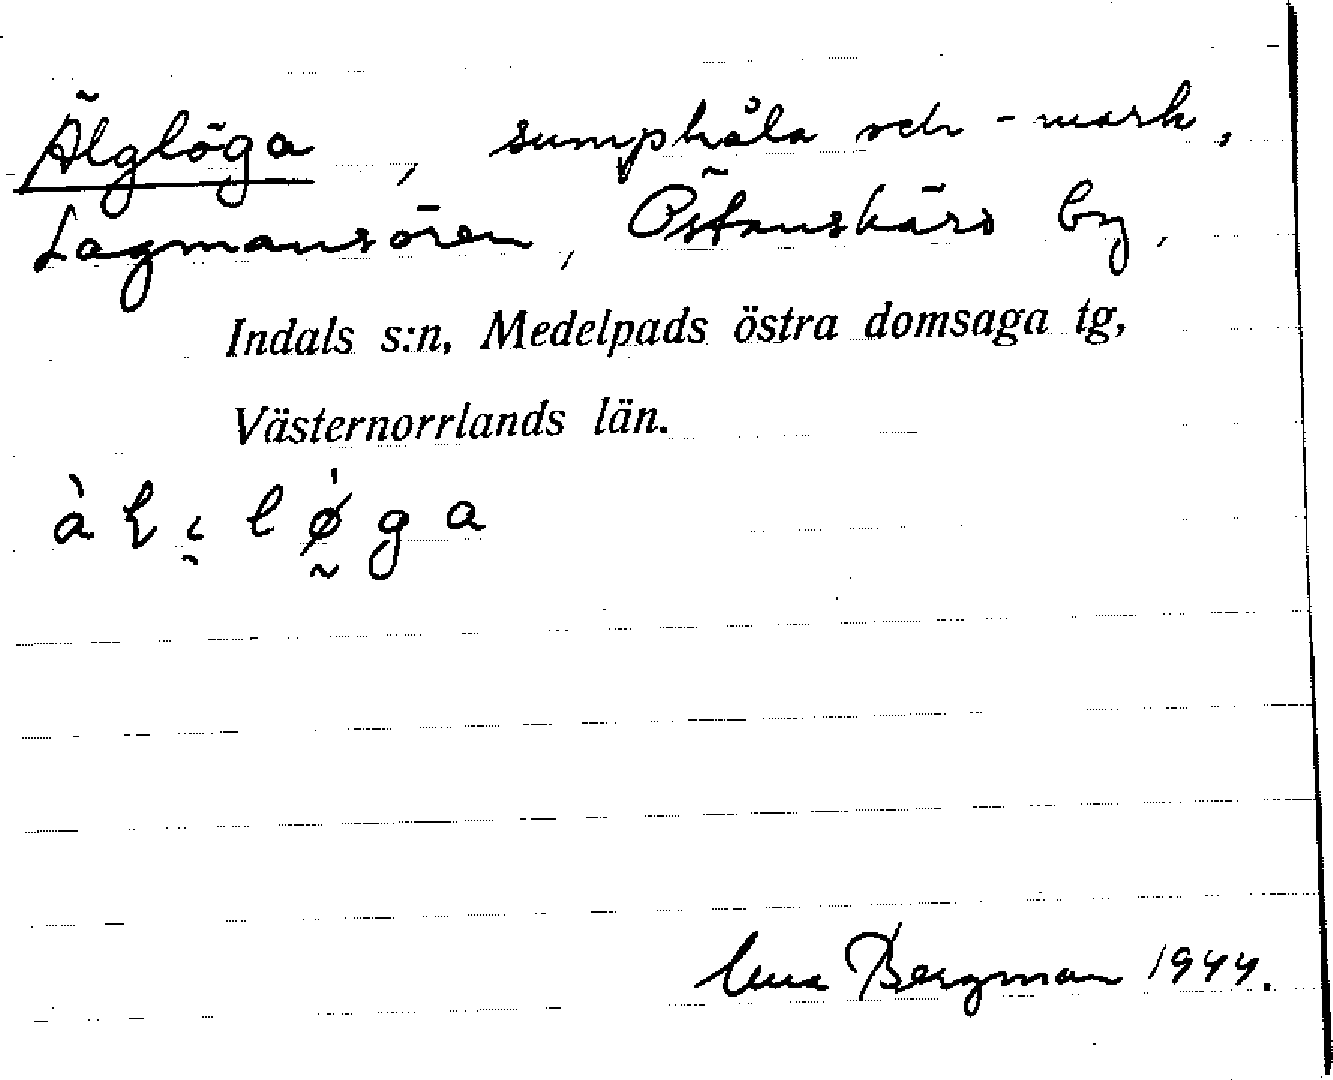 Älglöga, sumphåla och -mark,
Lagmansören, Östanskärs by,
Indals s:n, Medelpads östra domsaga tg,
Västernorrlands län.
Bergman 1944.